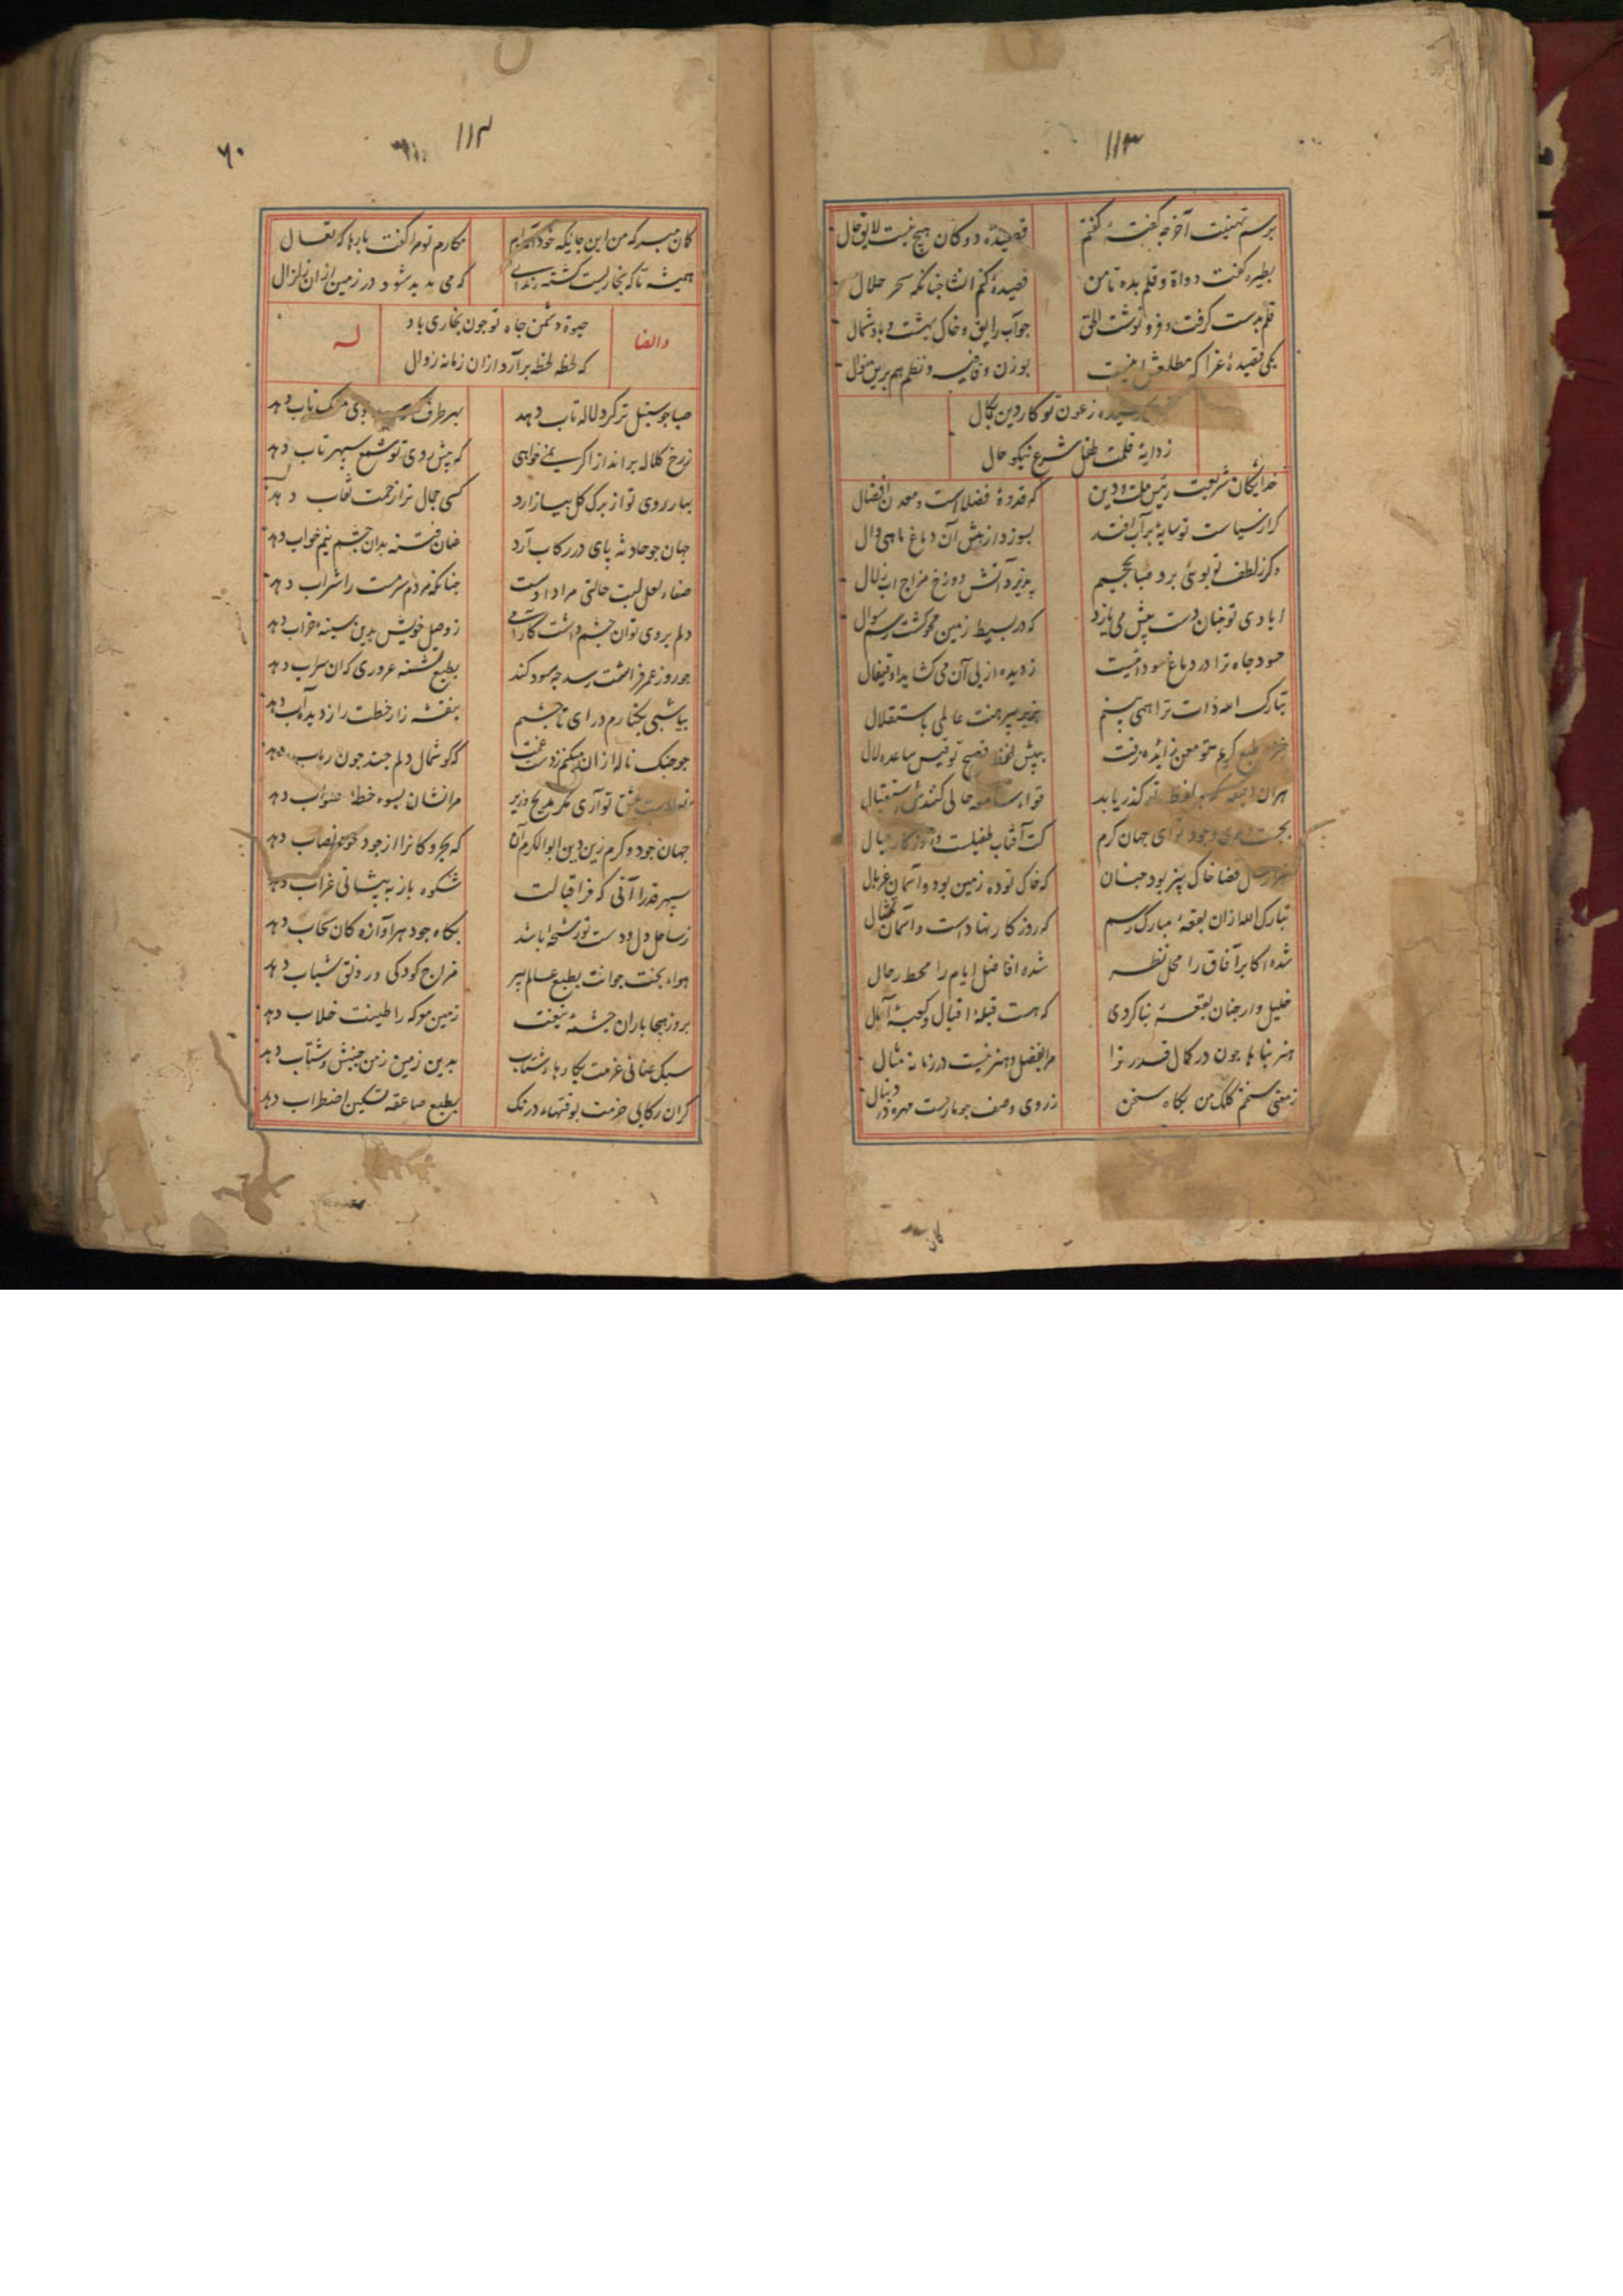 ۱۱۳
برسم تهنیت آخر چه گفتهٔ گفتم
قصیدهٔ دوکان هیچ نیست لایق حال
بطیره گفت دواة و قلم بده تا من
قصیدهٔ کنم انشا جنانکه سحر حلال
قلم بدست کرفت و فرو نوشت الحق
جو آب رایق و خاک بهشت و باد شمال
یکی قصیدهٔ غرا که مطلعش اینست
بوزن و قافیه و نظم هم برین منوال
رسیده ز عون تو کار دین بکمال
ز دایهٔ قلمت طفل شرع نیکو حال
خدایکان شریعت رئیس ملت و دین
که قدوهٔ فضلا است و معدن افضال
کر از سیاست تو سایهٔ بر آب افتد
بسوزد از تپش آن دماغ ماهی وال
وکر ز لطف تو بوئی برد صبا بجحیم
پذیرد آتش دوزخ مزاج آب زلال
ایادی تو جنان دست پیش می یازد
که در بسیط زمین محو کشت رسم سوال
حسود جاه ترا در دماغ سودائیست
ز دیده از پی آن می کشاید او قیفال
تبارک الله ذات ترا همی بینم
بزیر پیرهنت عالمی باستقلال
طبع کریم تو معن زائده رفت
بپیش لفظ فصیح تو قیس ساعده لال
کذر یابد
حالی کنندش استقبال
ای جهان کرم
کت آفتاب طفیلست و روزکار عیال
قضا خاک بیز بود جنان
که خاک توده زمین بود و آسمان غربال
تبارک الله ازان بقعهٔ مبارک رسم
که روزکار نهاد است و آسمان تمثال
شده اکابر آفاق را محل نظر
شده افاضل ایام را محط رحال
خلیل وار جنان بقعهٔ بنا کردی
که هست قبلهٔ اقبال و کعبهٔ آمال
هنر پناها جون در کمال قدر ترا
مرا بفضل و هنر نیست در زمانه مثال
ز معنی سخنم کلک من بکاه سخن
ز روی وصف جو مار است مهره در دنبال
۱۱۴
۶۰
کمان مبر که من این جایکه خود آمده ام
مکارم تو مرا گفت بارها که تعال
همیشه تا که بخاریست کشته
که می پدید شود در زمین ازان زلزال
والضا
حیوة دشمن جاه تو جون بخاری باد
که لحظه لحظه برآرد ازان زمانه زوال
له
صبا جو سنبل تر کرد لاله تاب دهد
بهر طرف
ز رخ کلاله برانداز اکر نمی خواهی
که پیش روی تو شمع سپهر تاب دهد
بهار روی تو از برک کل بیازارد
کسی جمال ترا زحمت نقاب دهد
جهان جو حادثه پای در رکاب آرد
عنان فتنه بدان چشم نیم خواب دهد
صفاء لعل لبت حالتی مرا دادست
جنانکه مردم سرمست را شراب دهد
دلم بروی تو آن چشم داشت کارامی
ز وصل خویش بدین سینهٔ خراب دهد
جو روز عمر فراشت رسد چه سود کند
بطبع تشنه غروری که آن سراب دهد
بیا شبی بکنارم درآی تا چشمم
بنفشه زار خطت را ز دیده آب دهد
جو جنک ناله ازان میکنم ز دست غمت
که کوشمال دلم جند جون رباب دهد
عشق تو آری مکر مدیح وزیر
مرا نشان بسوء خطا صواب دهد
جهان جود و کرم زین دین ابوالکرم آن
که بحر و کانرا از جود خود نصاب دهد
سپهر قدرا آنی که فر اقبالت
شکوه باز به پیشانی غراب دهد
ز ساحل دل و دست تو رشحهٔ باشد
بکاه جود هر آوازه کان سحاب دهد
هواء بخت جوانت بطبع عالم پیر
مزاج کودکی و رونق شباب دهد
بروز هیجا باران چشمهٔ تیغت
زمین معرکه را طینت خلاب دهد
سبک عنانی عزمت بکارهاء شتاب
بدین زمین زمن جنبش و شتاب دهد
کران رکابی حزمت بوقتهاء درنک
بطبع صاعقه تسکین اضطراب دهد